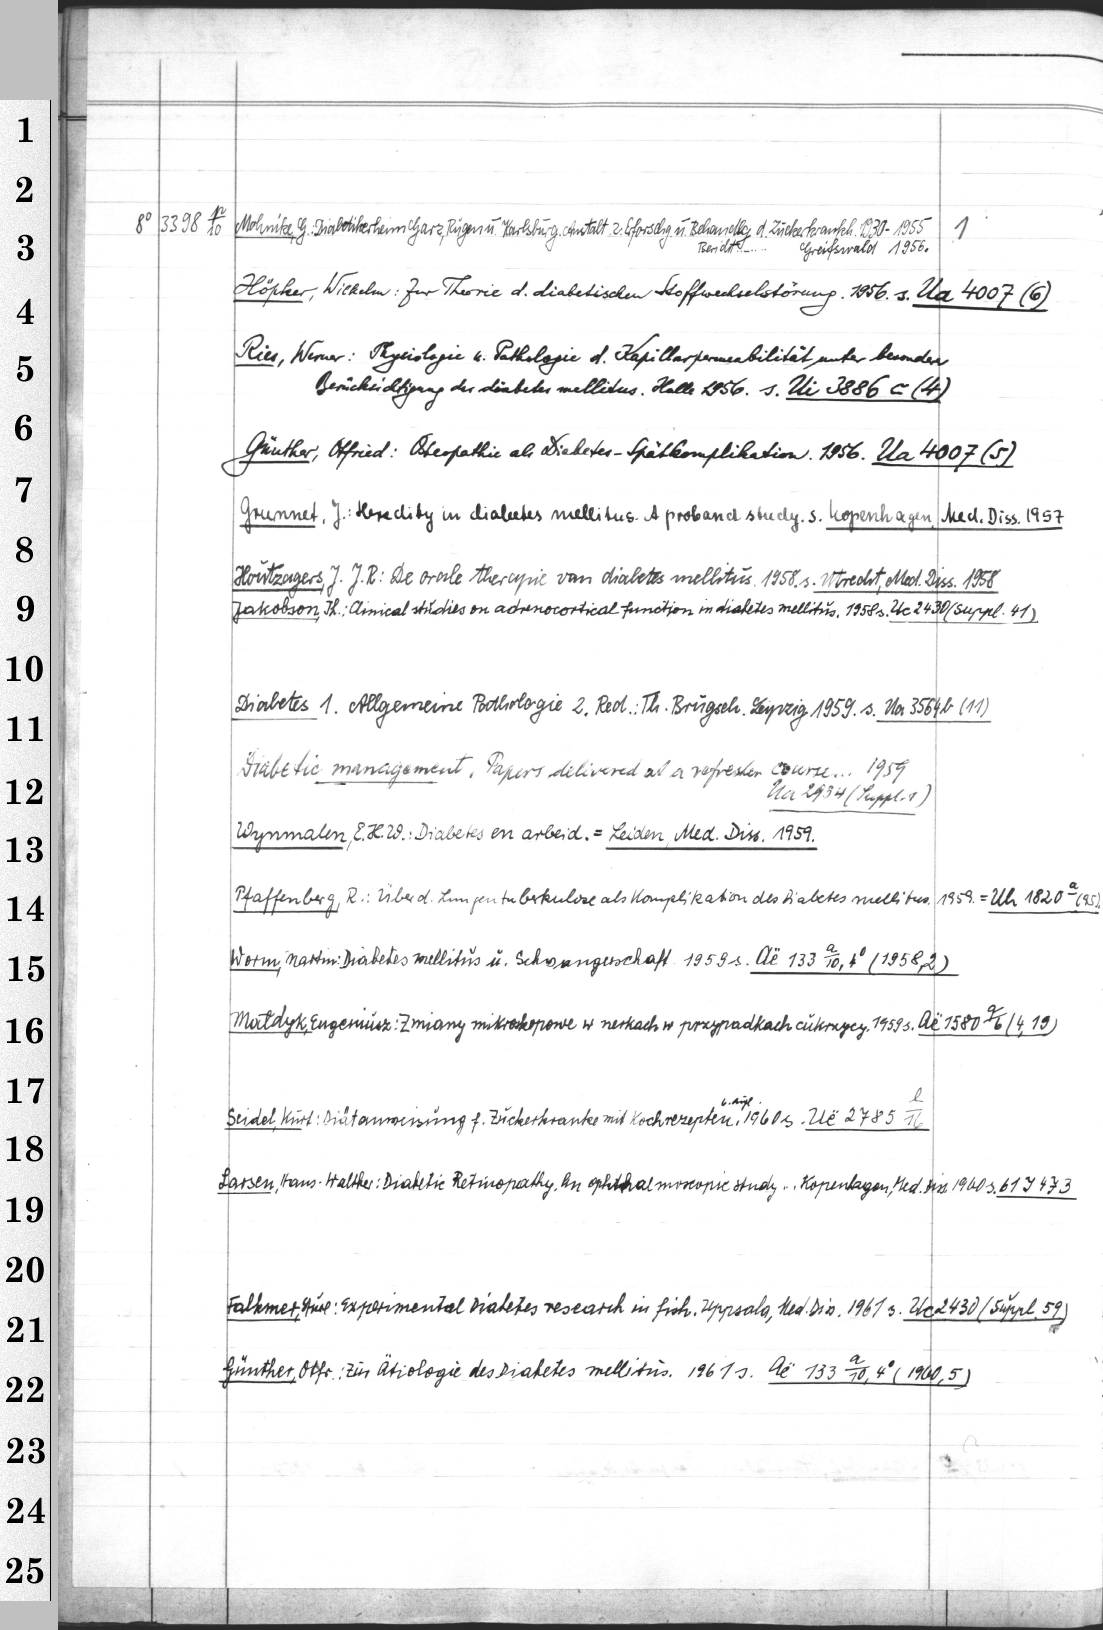 1
2
8° 3398 n/10 Mohnike, G. Diabetikerheim Garz, Rügen u. Karlsburg. Anstalt z. Erforschg u. Behandlg d. Zuckerkrankh. 1930-1955 1
3
Bericht... Greifswald 1956.
Höpker, Wilhelm: Zur Theorie d. diabetischen Stoffwechselstörung. 1956. s. Ua 4007 (6)
4
Ries, Werner: Physiologie u. Pathologie d. Kapillarpermeabilität unter besonder
5
Berücksichtigung des diabetes mellitus. Halle 1956. s. Ui 3886 c (4)
6
Günther, Otfried: Osteopathie als Diabetes-Spätkomplikation. 1956. Ua 4007 (5)
7
Grunnet, J.: Heredity in diabetes mellitus. A proband study. s. Kopenhagen, Med. Diss. 1957
8
Houtzagers, J. J. R: De orale therapie van diabetes mellitus. 1958. s. Utrecht, Med. Diss. 1958
9
Jakobson, Th.: Clinical studies on adrenocortical function in diabetes mellitus. 1958 s. Uc 2430 (Suppl. 41)
10
Diabetes 1. Allgemeine Pathologie 2. Red.: Th. Brugsch. Leipzig 1959. s. Ua 3564b (11)
11
Diabetic management. Papers delivered at a refresher course... 1959
12
Ua 2934 (Suppl. 1)
Wynmalen, E.H.W.: Diabetes en arbeid. = Leiden, Med. Diss. 1959.
13
Pfaffenberg, R.: Über d. Lungentuberkulose als Komplikation des Diabetes mellitus. 1959. = Uh 1820 a (95)
14
Worm, Martin: Diabetes mellitus u. Schwangerschaft 1959 s. Aë 133 a/10, 4° (1958,2)
15
Małdyk, Eugeniusz: Zmiany mikroskopowe w nerkach w przypadkach cukrzycy. 1959 s. Aë 1580 a/6 (4, 19)
16
17
6. Aufl.
Seidel, Kurt: Diätanweisung f. Zuckerkranke mit Kochrezepten. 1960 s. Uë 2785 l/16
18
Larsen, Hans-Walther: Diabetic Retinopathy. An ophthalmoscopic study... Kopenhagen, Med. Diss. 1960 s. 61 J 473
19
20
Falkmer, Sture: Experimental Diabetes research in fish. Uppsala, Med. Diss. 1961 s. Uc 2430 (Suppl. 59)
21
Günther, Otfr.: Zur Ätiologie des Diabetes mellitus. 1961 s. Aë 133 a/10, 4° (1960, 5)
22
23
24
25